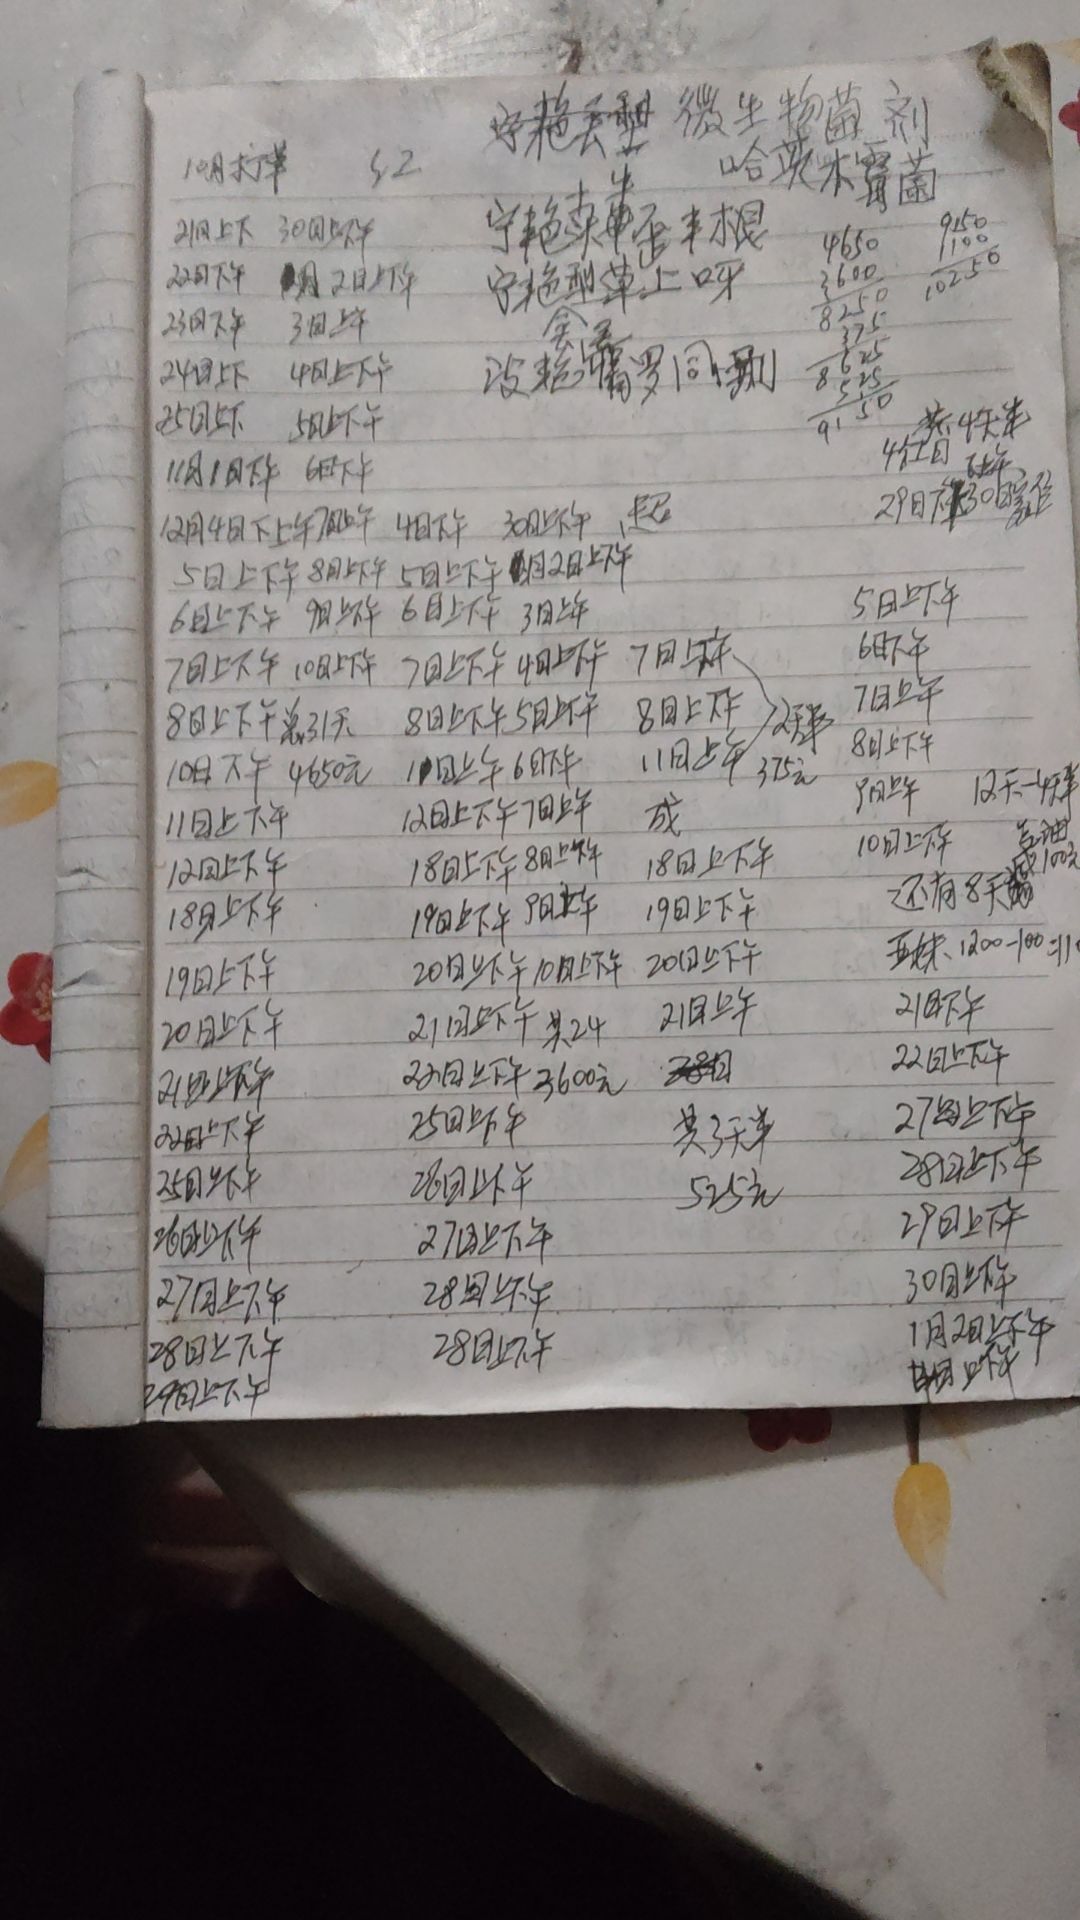 微生物菌剂
10月 红 哈茨木霉菌
21日上下 30日上下午 4650 9150
22日下午 1月2日上下午 3600 100
23日下午 3日上午 8250 10250
24日上下 4日上下午 375
25日上下 5日上下午 8625
11月1日下午 6日下午 525
9150
共4天半
29日下午30日
12月4日下上午7日上午 4日下午 30日上下午 超
5日上下午 8日上下午 5日上下午 1月2日上下午
6日上下午 9日上下午 6日上下午 3日上午 5日上下午
7日上下午 10日上下午 7日上下午 4日上下午 7日上下午 6日下午
8日上下午 总31天 8日上下午 5日上下午 8日上下午 2天半 7日上午
10日下午 4650元 11日上午 6日下午 11日上午 375元 8日上下午
11日上下午 12日上下午 7日上午 成 9日上午 12天-4天半
12日上下午 18日上下午 8日上下午 18日上下午 10日上下午 100元
18日上下午 19日上下午 9日上午 19日上下午 还有8天
19日上下午 20日上下午 10日上下午 20日上下午 1200-100=11
20日上下午 21日上下午 共24 21日上午 21日下午
21日上下午 22日上下午 3600元 28日 22日上下午
22日上下午 25日上下午 共3天半 27日上下午
25日上下午 26日上下午 525元 28日上下午
26日上下午 27日上下午 29日上下午
27日上下午 28日上下午 30日上下午
28日上下午 28日上下午 1月2日上下午
29日上下午 4日上下午